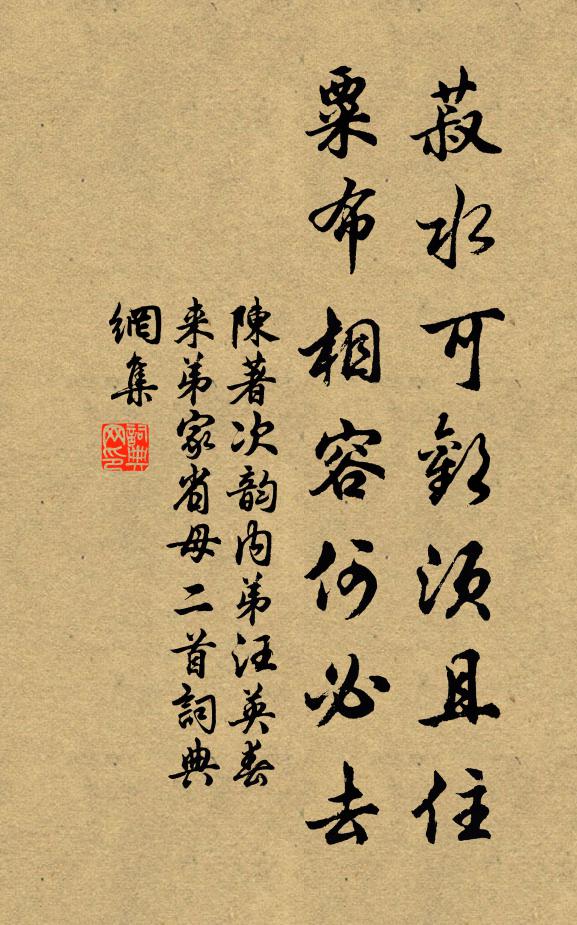 菽水可歡須且住
粟布相容何必去
陳著次韵内弟汪英春
来弟家省母二首詞典
網集
詞典网印